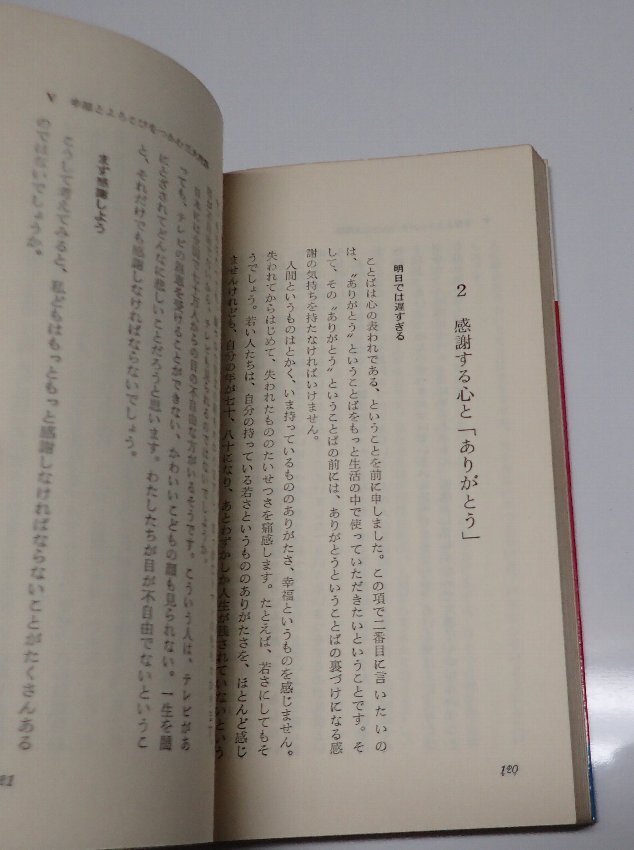 2 感謝する心と「ありがとう」
明日では遅すぎる
ことばは心の表われである、ということを前に申しました。この項で二番目に言いたいの
は、〝ありがとう〟ということばをもっと生活の中で使っていただきたいということです。そ
して、その〝ありがとう〟ということばの前には、ありがとうということばの裏づけになる感
謝の気持ちを持たなければいけません。
人間というものはとかく、いま持っているもののありがたさ、幸福というものを感じません。
失われてからはじめて、失われたもののたいせつさを痛感します。たとえば、若さにしてもそ
うでしょう。若い人たちは、自分の持っている若さというもののありがたさを、ほとんど感じ
ませんけれども、自分の年が七十、八十になり、あとわずかしか人生が残されていないという
120
っても、テレビの画面を見ることができない、かわいいこどもの顔も見られない。一生を闇
にとざされてどんなに悲しいことだろうと思います。わたしたちが目が不自由でないというこ
と、それだけでも感謝しなければならないでしょう。
まず感謝しよう
こうして考えてみると、私どもはもっともっと感謝しなければならないことがたくさんある
のではないでしょうか。
V
21